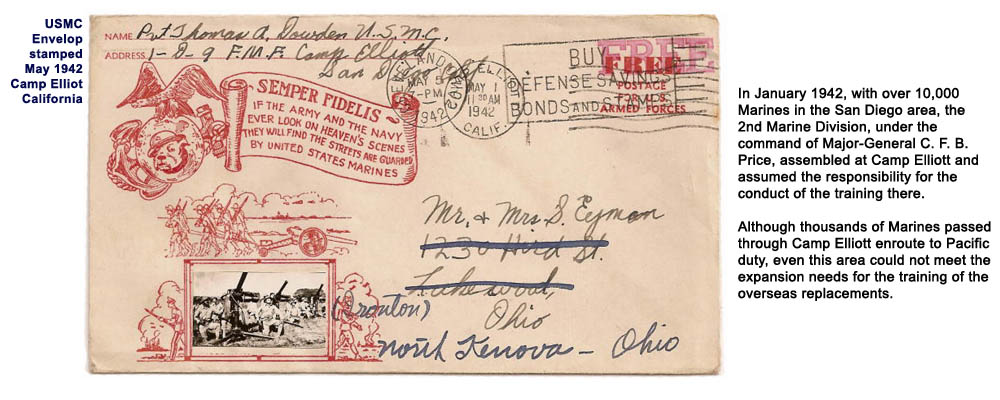 USMC
Envelop
stamped
May 1942
Camp Elliot
California
NAME Pvt Thomas A. Dowden U.S.M.C.
ADDRESS 1-D-9 F.M.F. Camp Elliott
San Diego Calif
MAY 5
PM
1942
MAY 1
11 30 AM
1942
CALIF.
BUY
DEFENSE SAVINGS
BONDS AND STAMPS
FREE
FREE
POSTAGE
ARMED FORCES
SEMPER FIDELIS
IF THE ARMY AND THE NAVY
EVER LOOK ON HEAVEN'S SCENES
THEY WILL FIND THE STREETS ARE GUARDED
BY UNITED STATES MARINES
Mr. & Mrs. S. Eyman
1230 Hird St.
Lakewood,
(Ironton)
Ohio
North Kenova - Ohio
In January 1942, with over 10,000
Marines in the San Diego area, the
2nd Marine Division, under the
command of Major-General C. F. B.
Price, assembled at Camp Elliott and
assumed the responsibility for the
conduct of the training there.
Although thousands of Marines passed
through Camp Elliott enroute to Pacific
duty, even this area could not meet the
expansion needs for the training of the
overseas replacements.